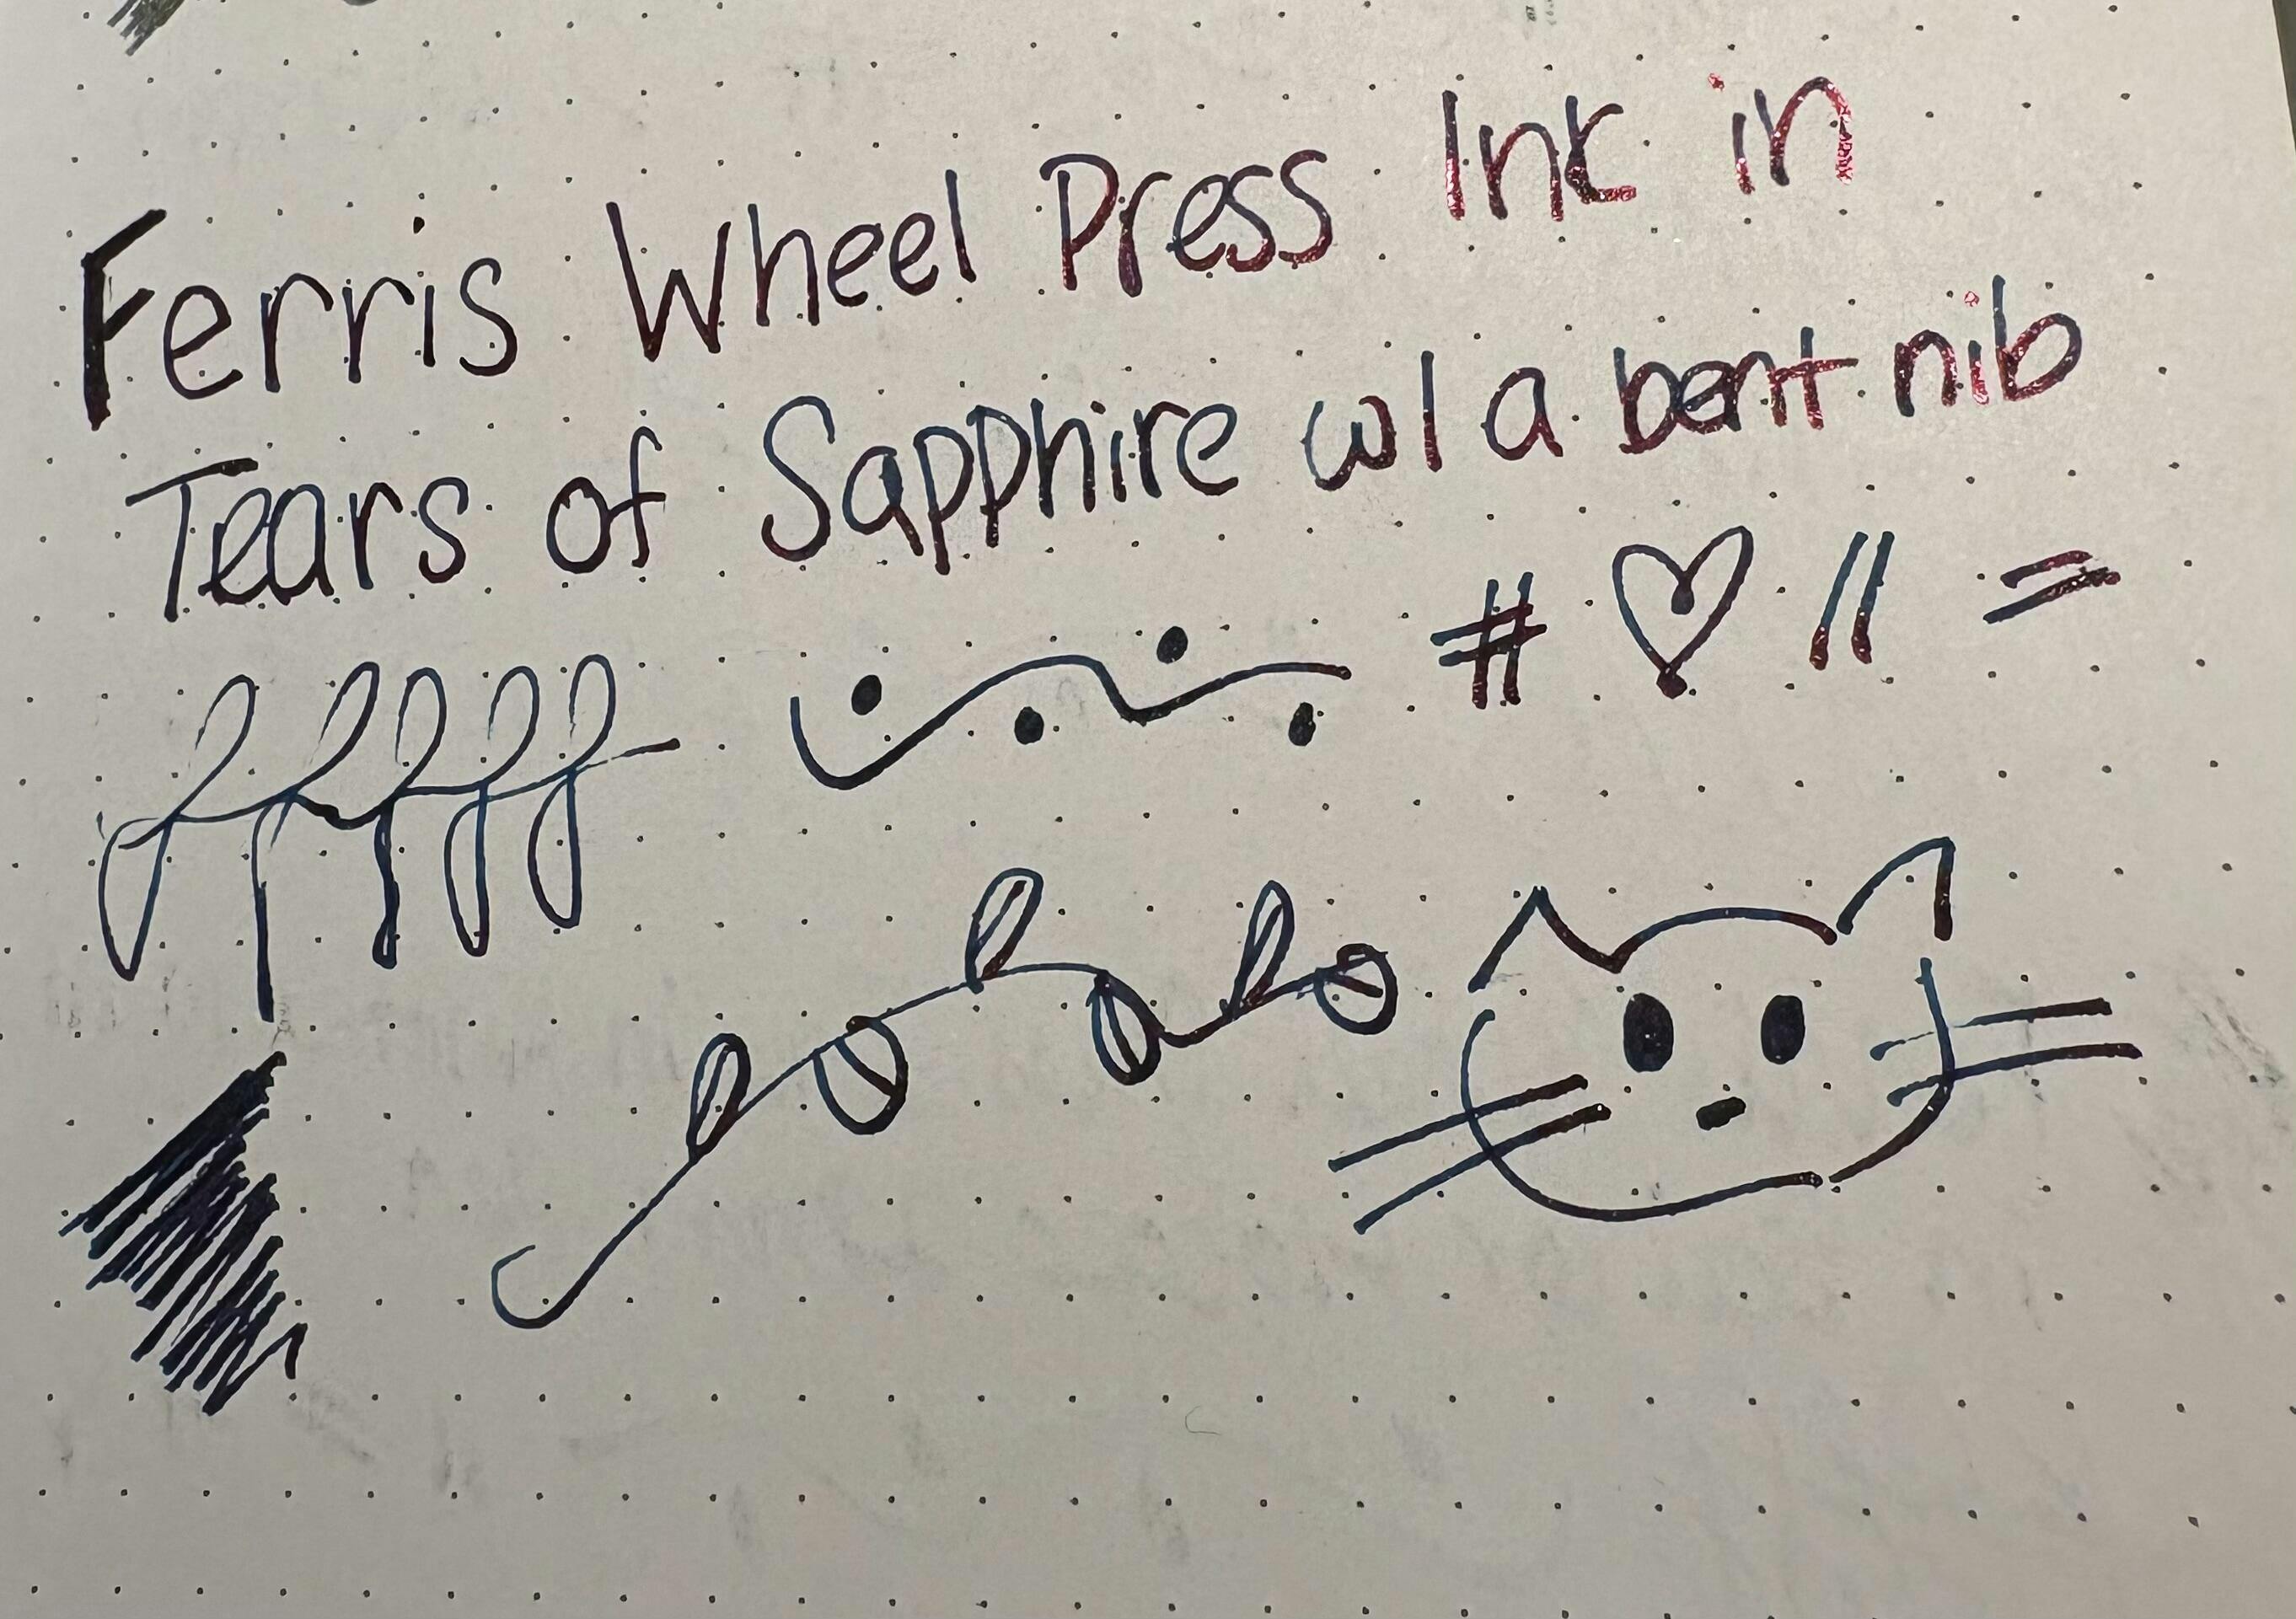 Ferris Wheel Press Ink in
Tears of Sapphire w/ a bent nib
# ♡ // =